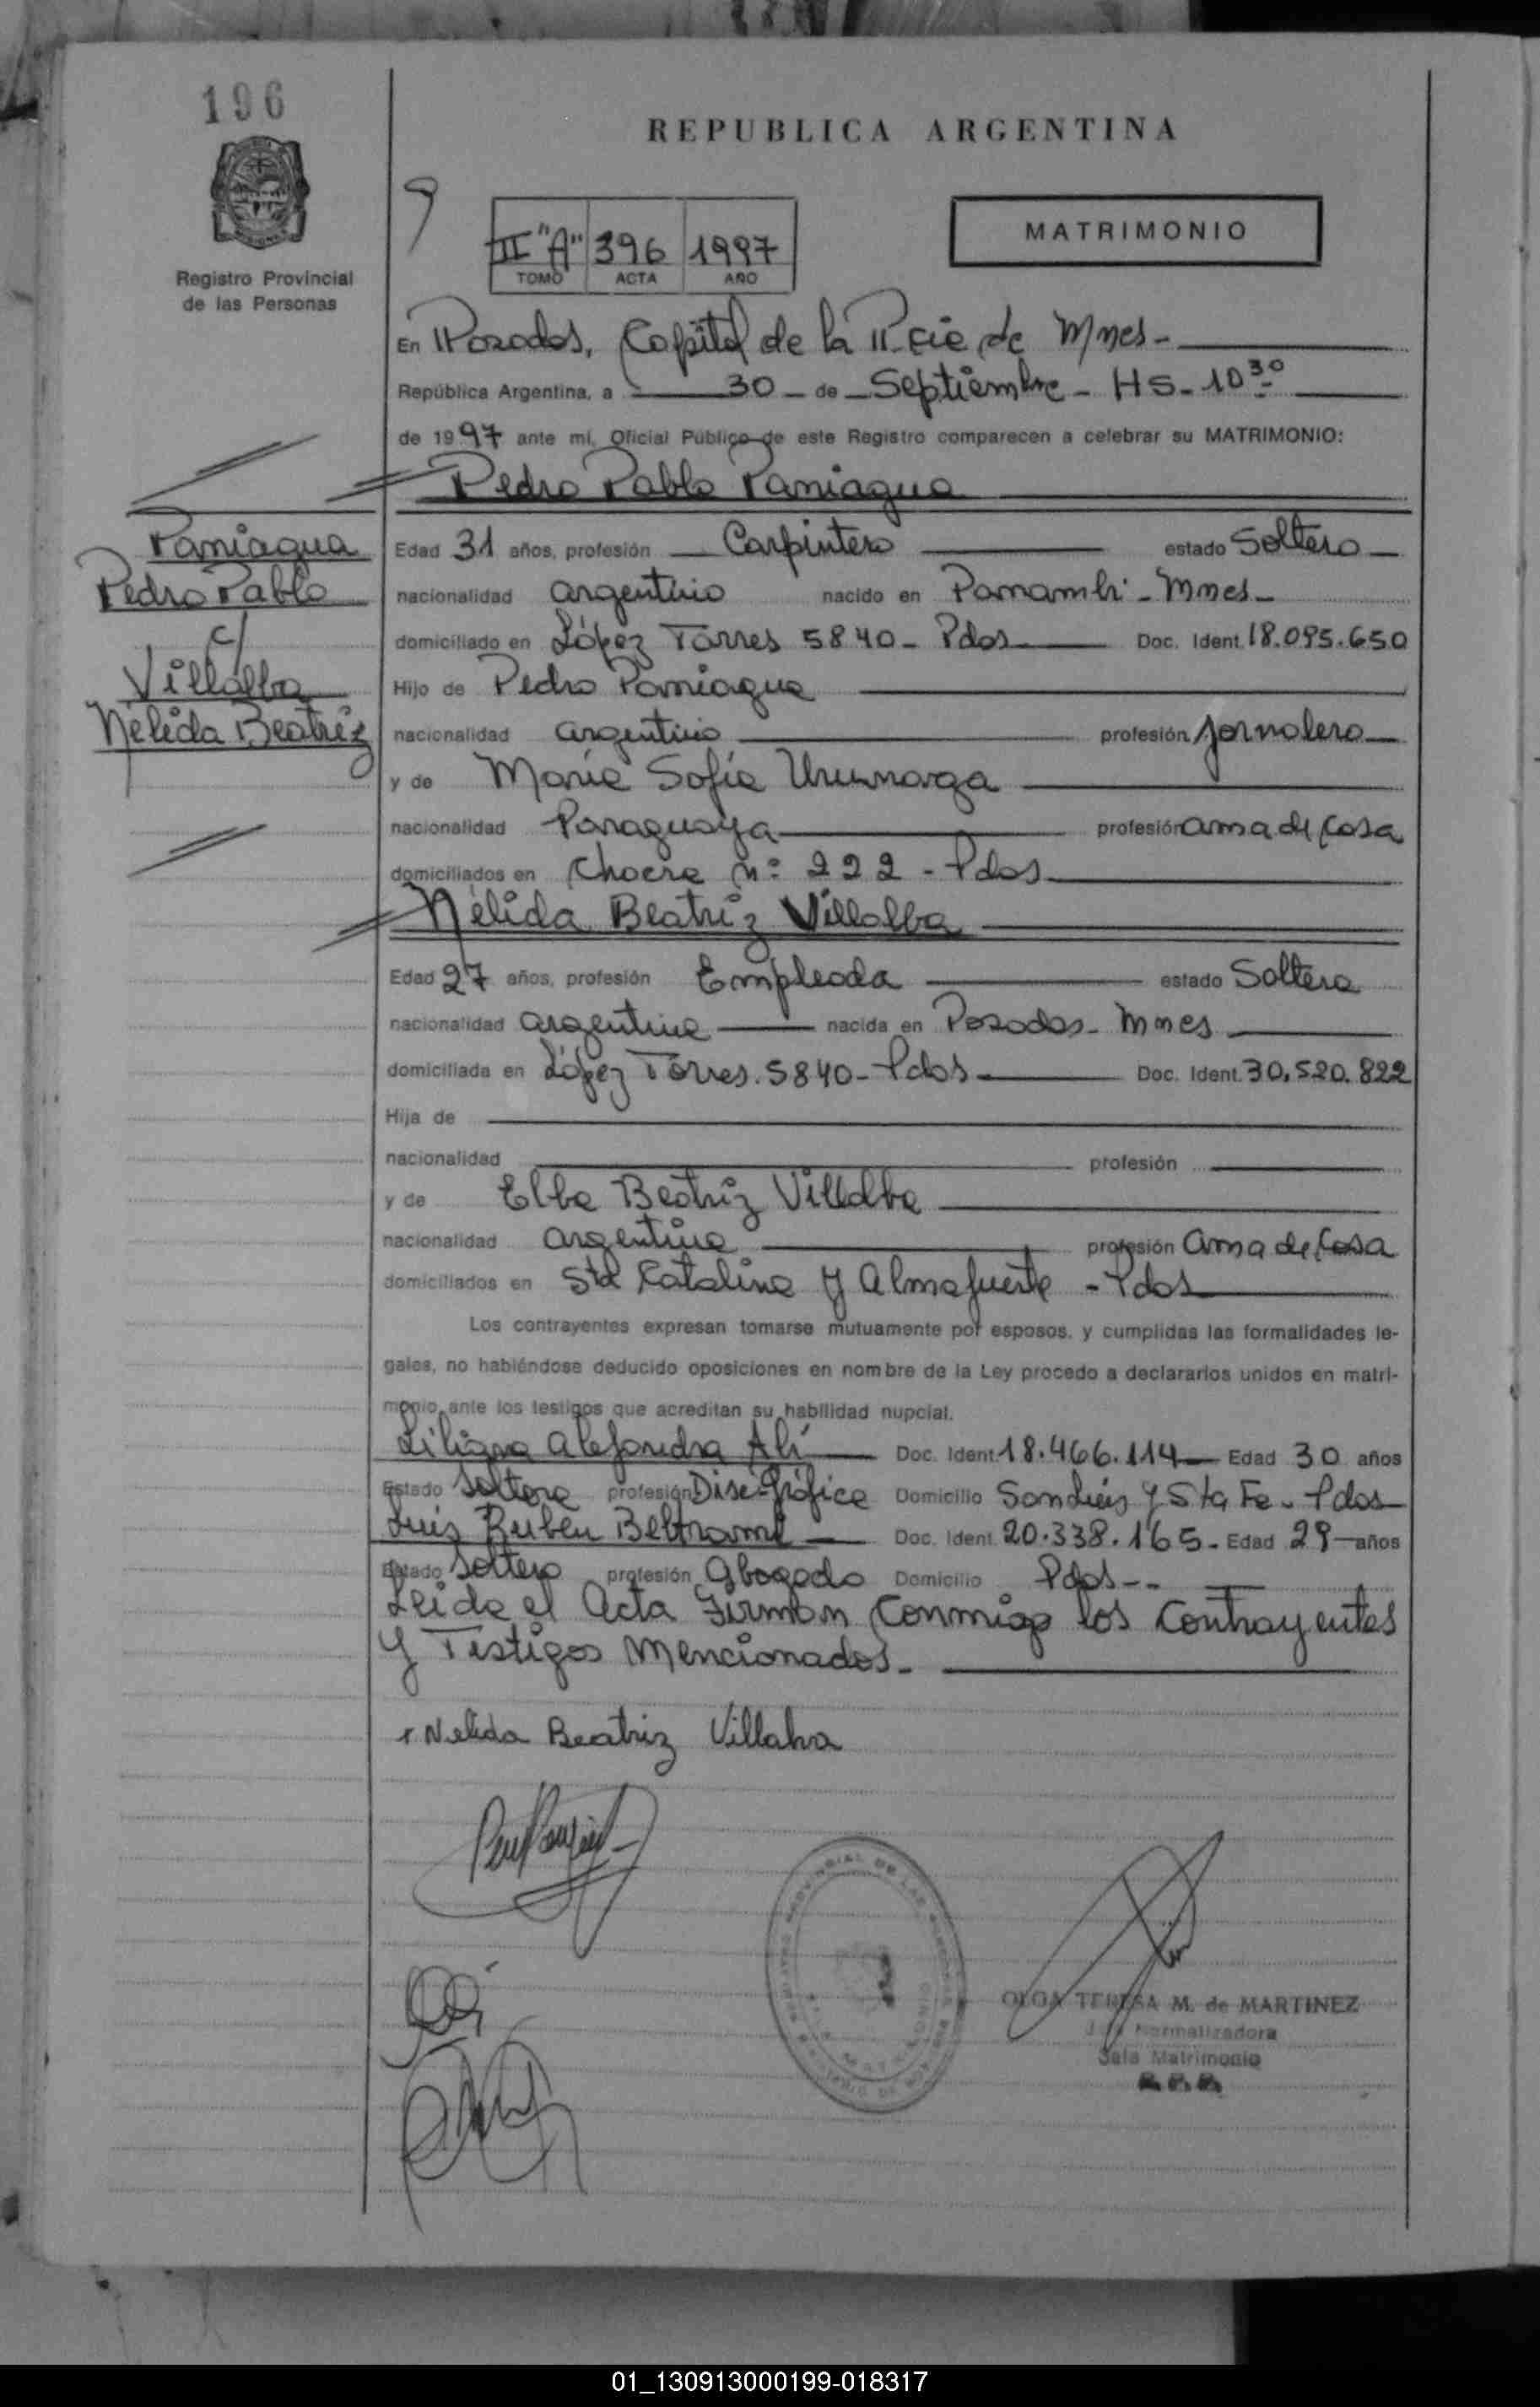 196
REPUBLICA ARGENTINA
Registro Provincial
de las Personas
II "A" 396 1997
TOMO ACTA AÑO
MATRIMONIO
En Posadas, Capital de la Pcie de Mnes-
República Argentina, a 30 - de - Septiembre - HS - 10 30
de 1997 ante mí, Oficial Público de este Registro comparecen a celebrar su MATRIMONIO:
Pedro Pablo Paniagua
Paniagua
Pedro Pablo
c/
Villalba
Nélida Beatriz
Edad 31 años, profesión Carpintero estado Soltero
nacionalidad argentino nacido en Panambi - Mnes-
domiciliado en López Torres 5840 - Pdas Doc. Ident. 18.095.650
Hijo de Pedro Paniagua
nacionalidad argentino profesión Jornalero
y de María Sofía
nacionalidad Paraguaya profesión ama de Casa
domiciliados en n: 222 - Pdas
Nélida Beatriz Villalba
Edad 27 años, profesión Empleada estado Soltera
nacionalidad argentina nacida en Posadas - Mnes
domiciliada en López Torres. 5840 - Pdas Doc. Ident. 30.520.822
Hija de
nacionalidad profesión
y de Elba Beatriz Villalba
nacionalidad argentina profesión ama de Casa
domiciliados en Sta Catalina y Almafuerte - Pdas
Los contrayentes expresan tomarse mutuamente por esposos, y cumplidas las formalidades le-
gales, no habiéndose deducido oposiciones en nombre de la Ley procedo a declararlos unidos en matri-
monio, ante los testigos que acreditan su habilidad nupcial.
Liliana Alejandra Alí Doc. Ident. 18.466.114 Edad 30 años
Estado Soltera profesión Dise-Gráfica Domicilio y Sta Fe - Pdas
Luis Ruben Doc. Ident. 20.338.165 - Edad 29 años
Estado Soltero profesión Abogado Domicilio Pdas--
Leida el Acta Firman Conmigo los Contrayentes
y Testigos Mencionados -
Nelida Beatriz Villalva
OLGA TERESA M. de MARTINEZ
Normalizadora
Sala Matrimonio
01_130913000199-018317